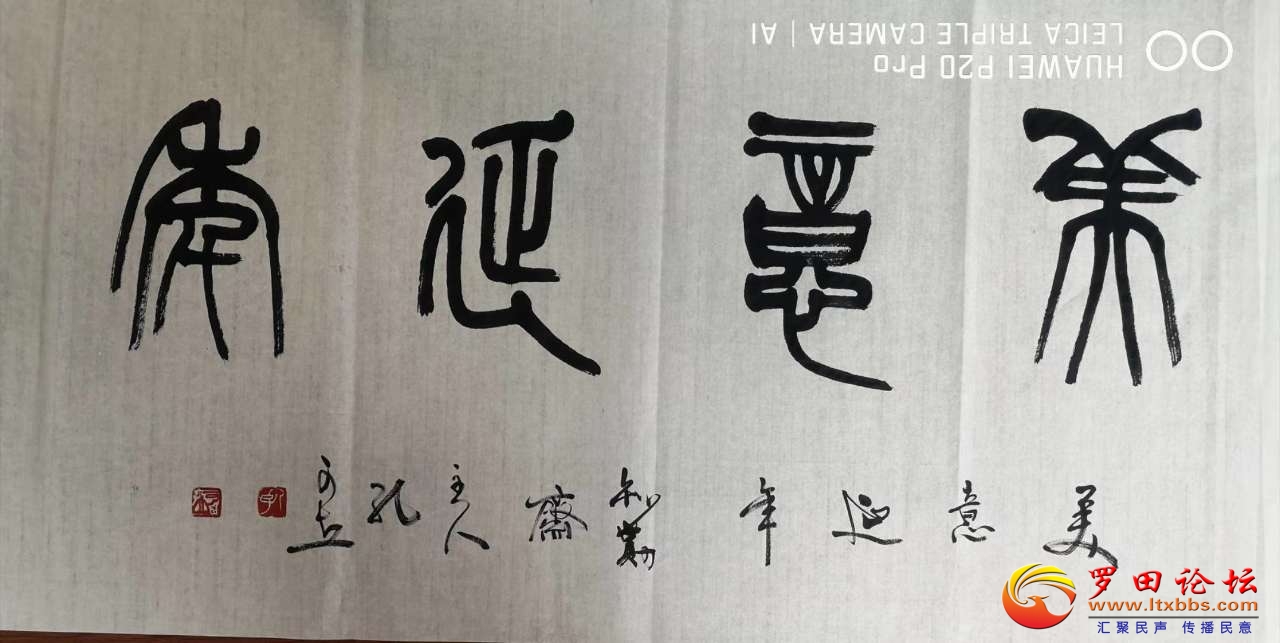 美意延年
美意延年 知 齋主人 孔
HUAWEI P20 Pro
LEICA TRIPLE CAMERA | AI
罗田论坛
www.ltxbbs.com
汇聚民声 传播民意